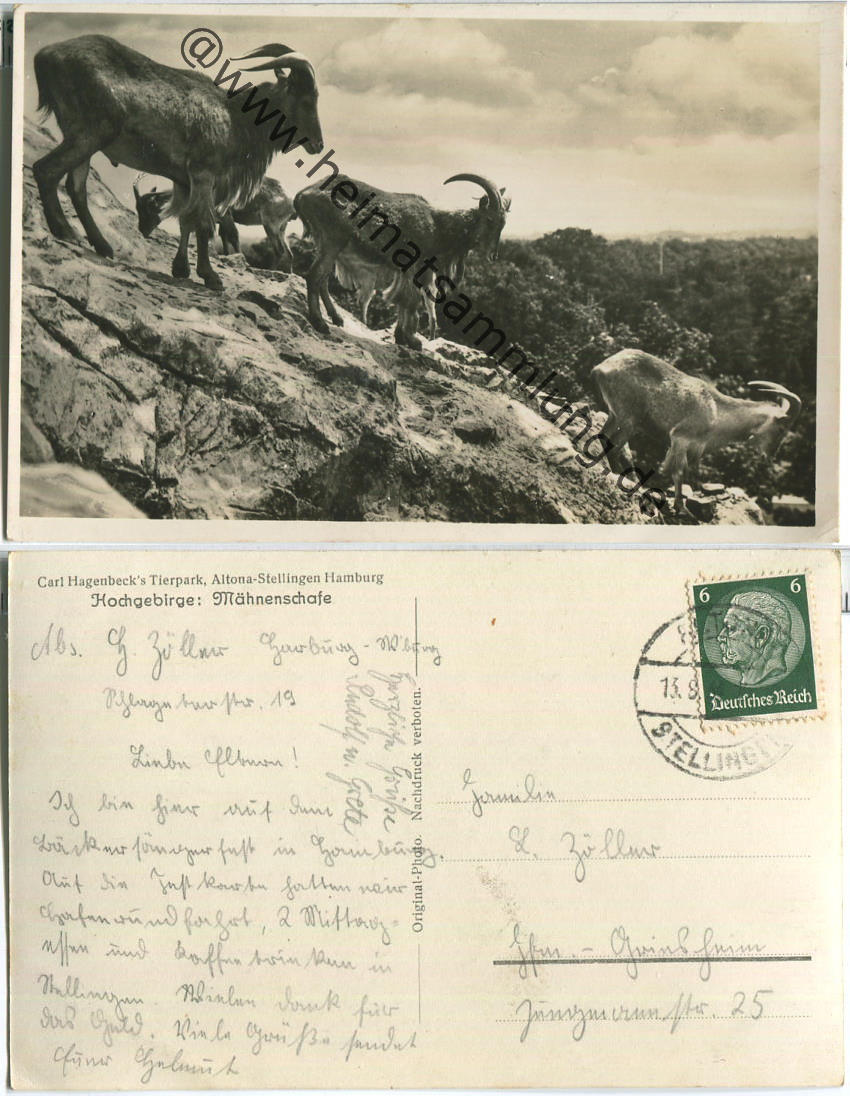 @www.heimatsammlung.de
Carl Hagenbeck's Tierpark, Altona-Stellingen Hamburg
Hochgebirge: Mähnenschafe
Abs. H. Zöller Harburg - W'burg
Schlageterstr. 19
Liebe Eltern!
Ich bin hier auf dem
Bäckersängerfest in Hamburg.
Auf die Festkarte hatten wir
Hafenrundfahrt, 2 Mittag-
essen und Kaffeetrinken in
Stellingen. Vielen Dank für
das Geld. Viele Grüße sendet
Euer Helmut
Herzliche Grüße
Rudolf u. Grete
Original-Photo. Nachdruck verboten.
6 6
Deutsches Reich
13.8
STELLINGEN
Familie
L. Zöller
Ffm. - Griesheim
Jungmannstr. 25